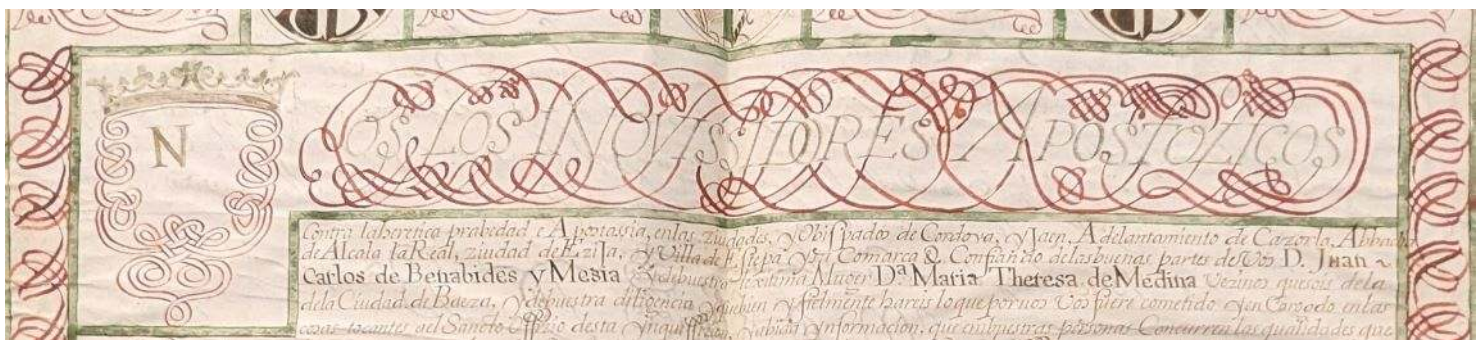 N
OS LOS INQVISIDORES APOSTOLICOS
Contra la heretica prabedad e Apostassia, en las ziudades, y Obispados de Cordova, y Jaen, Adelantamiento de Cazorla, Abbadia
de Alcala la Real, ziudad de Ezija, y Villa de Estepa y su Comarca &. Confiando de las buenas partes de Vos D. Juan
Carlos de Benabides y Mesia y de buestra lexitima Muger Dª Maria Theresa de Medina Vezinos que sois de la
de la Ciudad de Baeza, y de buestra diligencia y que bien y fielmente hareis lo que por nos Vos fuere cometido y en Cargado en las
cosas tocantes al Sancto Offizio desta Ynquissicion, y abida Ynformacion, que en buestras personas Concurren las qualidades que